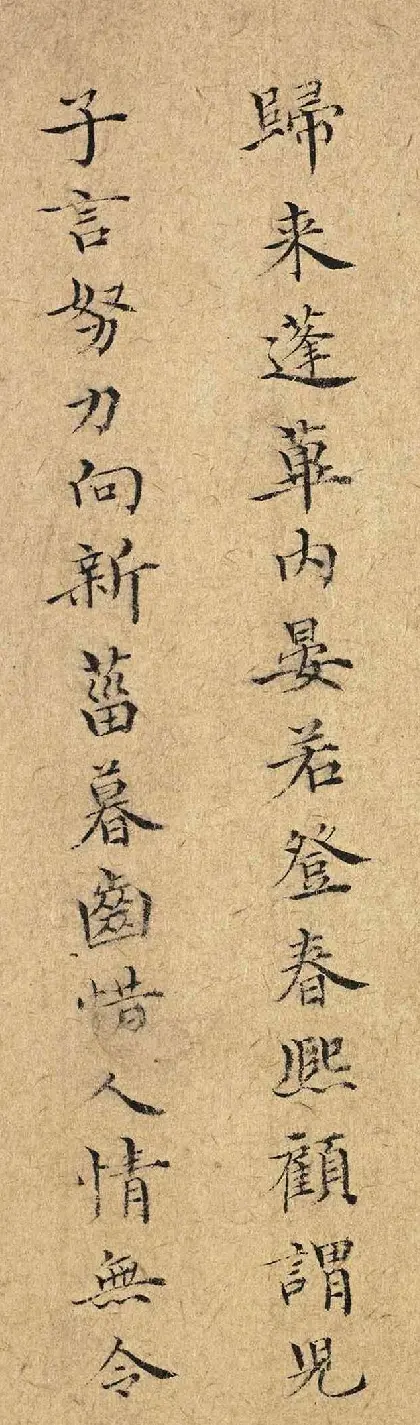 歸来蓬蓽内晏若登春熙顧謂児
子言努力向新菑暮齒惜人情無令